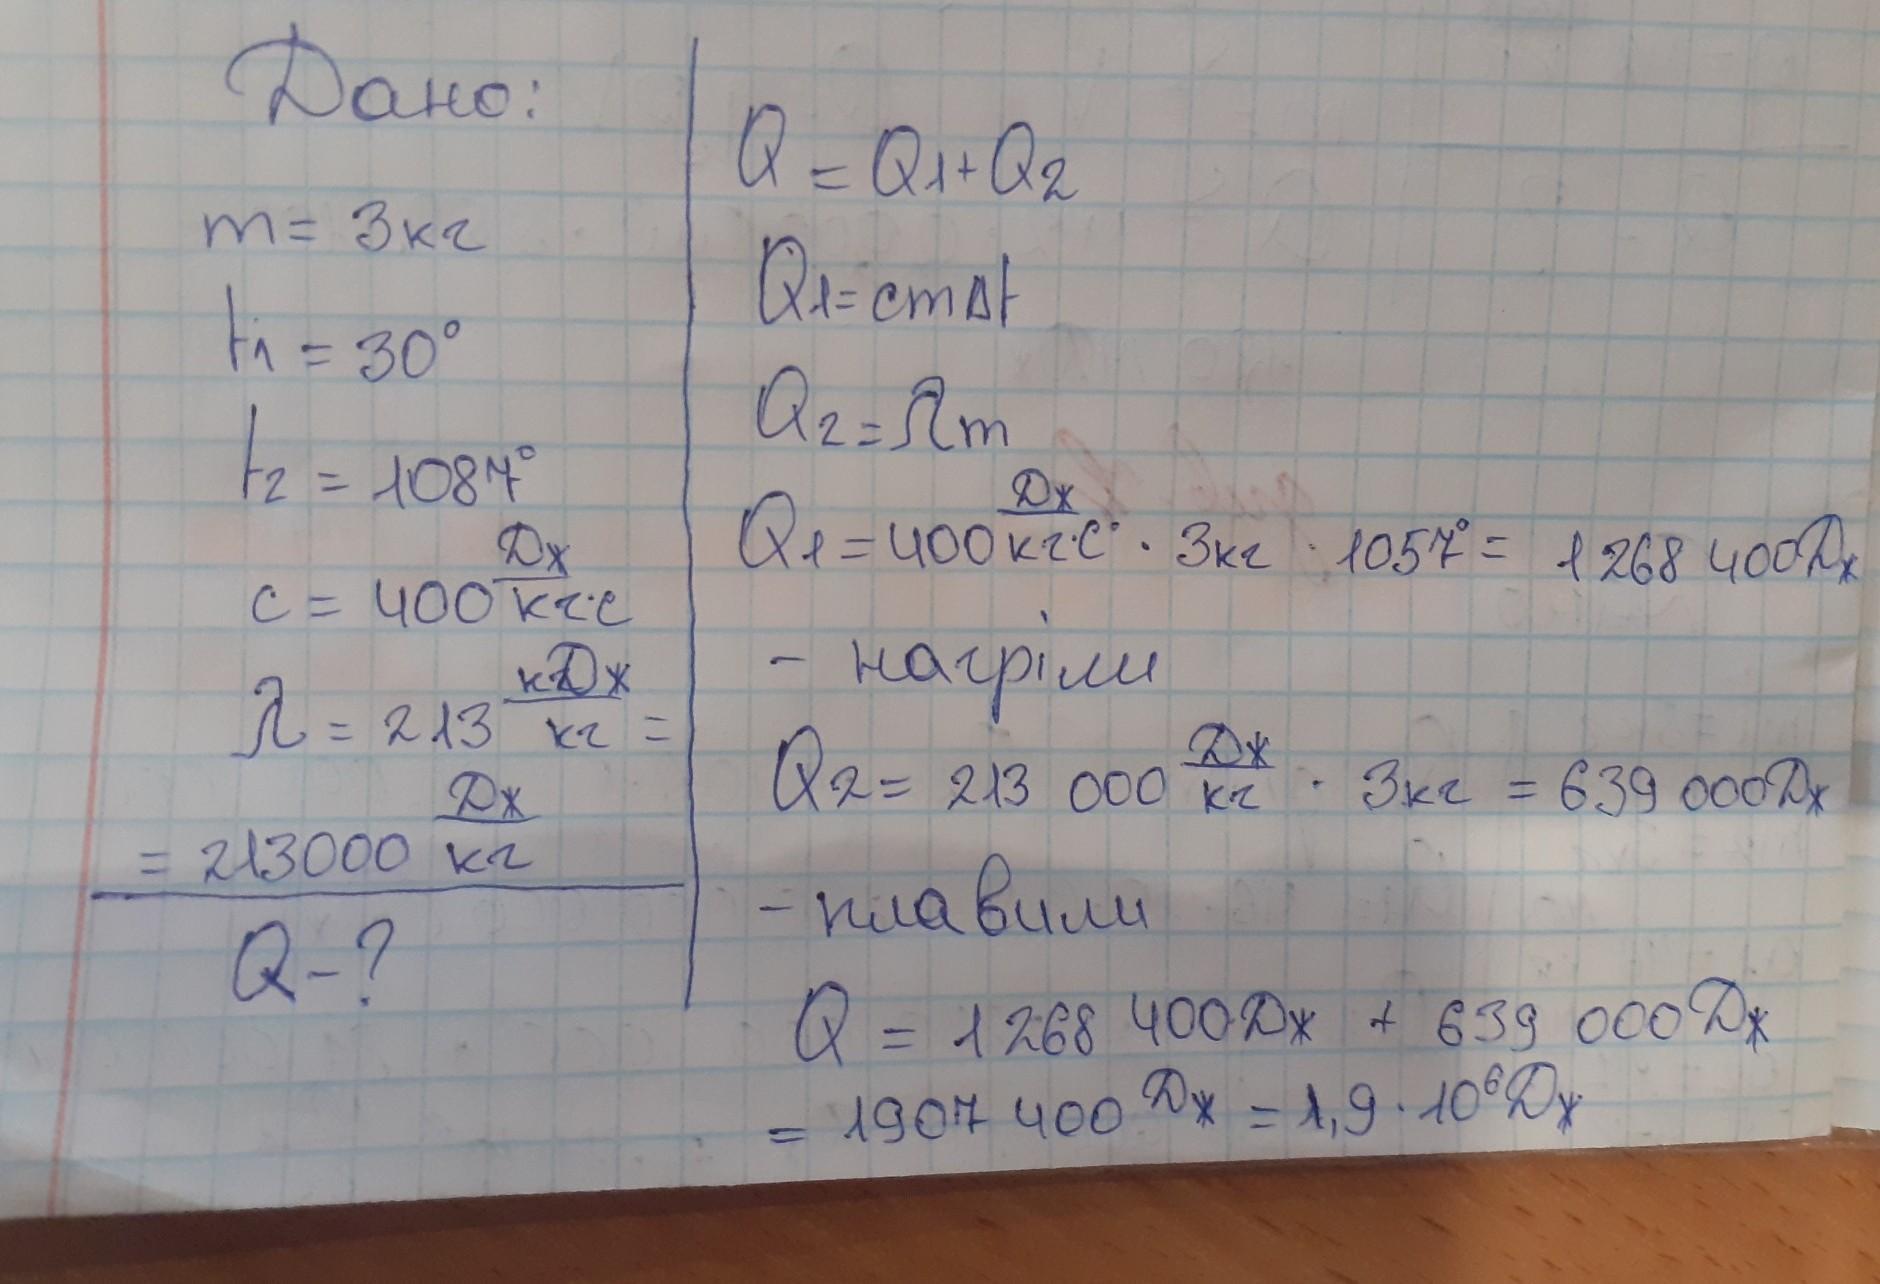 Дано:
m = 3кг
t1 = 30°
t2 = 1087°
c = 400 Дж/кг·с
λ = 213 кДж/кг =
= 213000 Дж/кг
Q - ?
Q = Q1 + Q2
Q1 = cmΔt
Q2 = λm
Q1 = 400 Дж/кг·С° · 3кг · 1057° = 1 268 400Дж
- нагріли
Q2 = 213 000 Дж/кг · 3кг = 639 000Дж
- плавили
Q = 1 268 400Дж + 639 000Дж
= 1907 400 Дж = 1,9 · 10⁶Дж